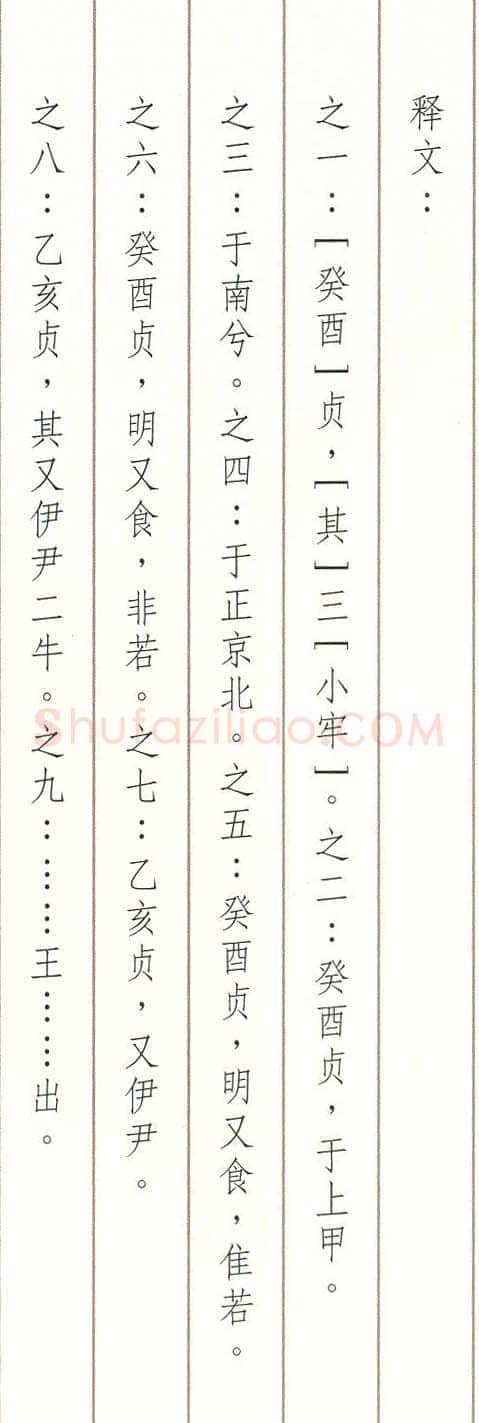 释文：
之一：[癸酉]贞，[其]三[小牢]。之二：癸酉贞，于上甲。
之三：于南兮。之四：于正京北。之五：癸酉贞，明又食，隹若。
之六：癸酉贞，明又食，非若。之七：乙亥贞，又伊尹。
之八：乙亥贞，其又伊尹二牛。之九：……王……出。
Shufaziliao.COM